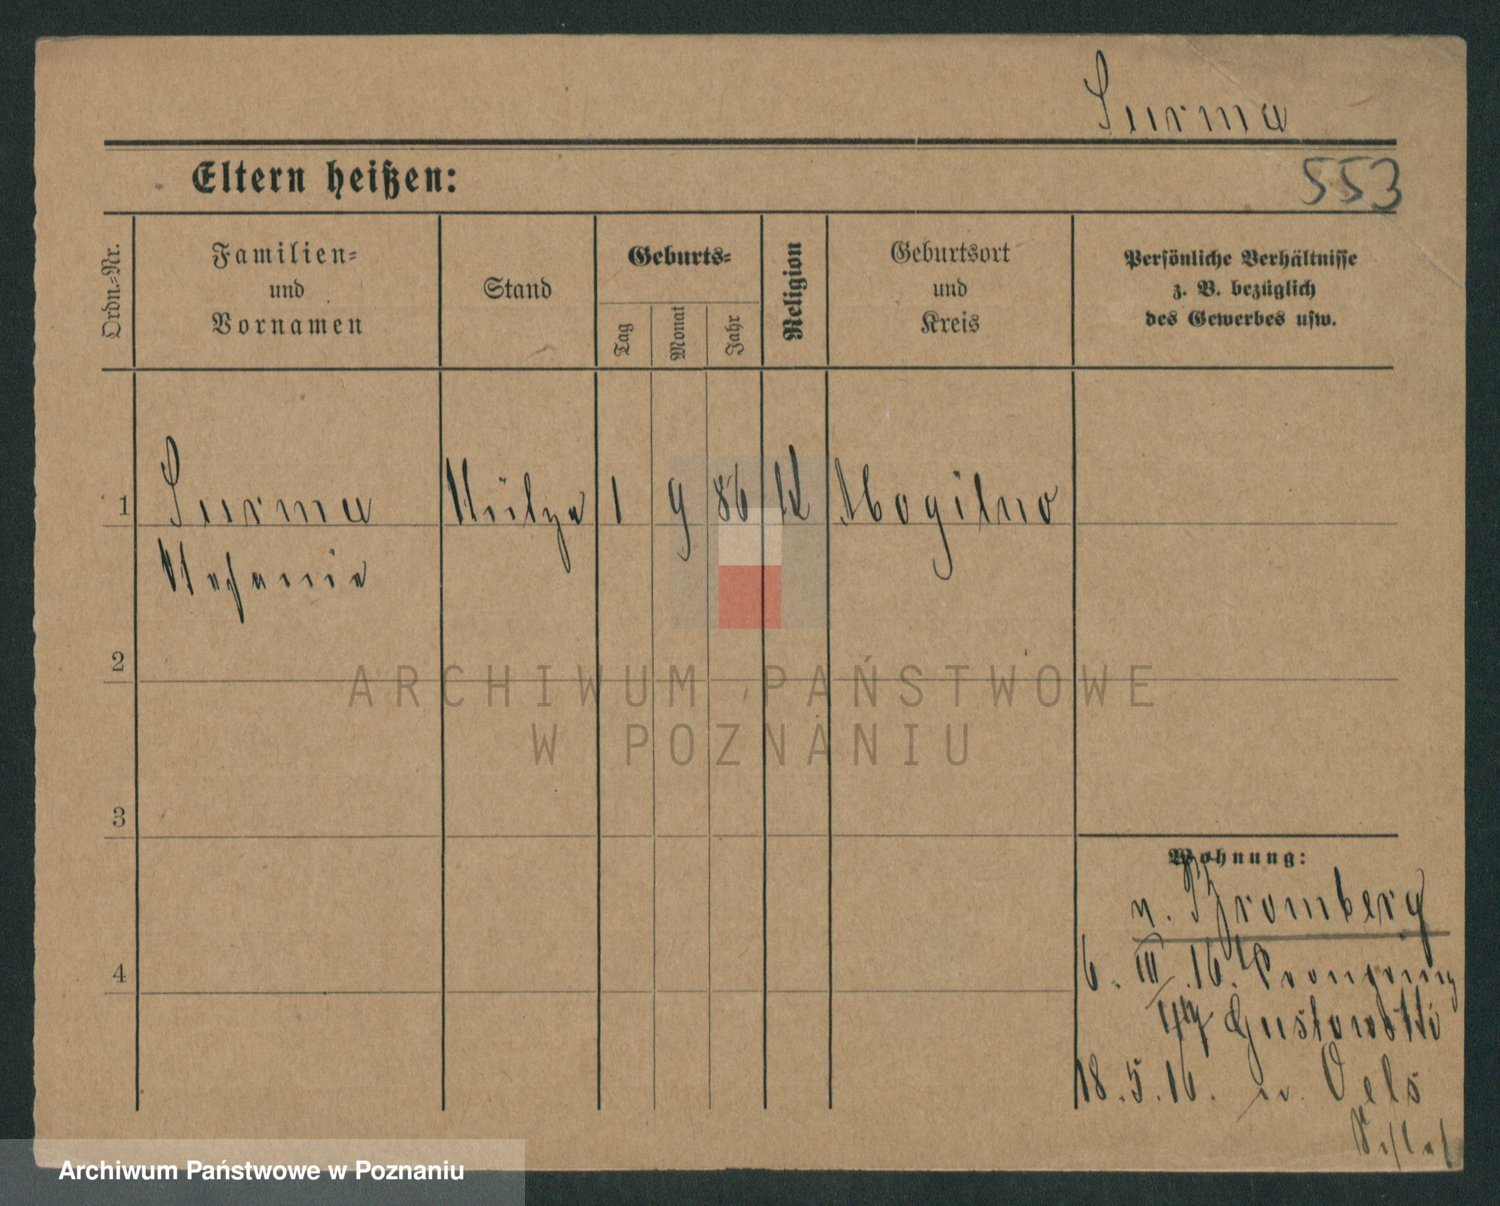 Surma
Eltern heißen:
553
Ordn.-Nr.
Familien-
und
Vornamen
Stand
Geburts-
Tag
Monat
Jahr
Religion
Geburtsort
und
Kreis
Persönliche Verhältnisse
z. B. bezüglich
des Gewerbes usw.
1
Surma
Stütze
1
9
86
K
Mogilno
Stefanie
2
3
4
ARCHIWUM PAŃSTWOWE
W POZNANIU
Wohnung:
n. Bromberg
6. III. 16.
Gustowski
18. 5. 16. n. Oels
Archiwum Państwowe w Poznaniu